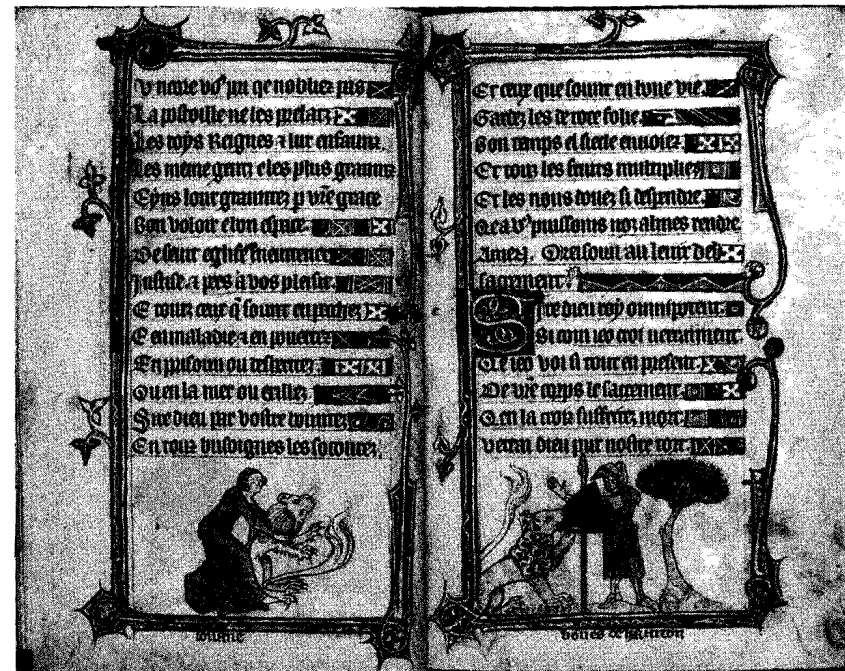 Uncore vo9 pri qe nobliez pas
La postoille ne les prelatz
Les roys Reignes ⁊ lur enfauntz.
Les mene gentz e les plus grauntz
Eyns lour grauntez p vr̃e grace
Bon voloir e bon espace.
De seint eglise
Justise. ⁊ pees a vos pleisir.
E touz ceux q̃ sount en pechez
E en maladie ⁊ en
En prisoun ou
Ou en la mer ou exillez.
Sire dieu par vostre bountez.
En touz busoignes les socourez.
Et ceux que sount en bone vie.
Gardez les de tote folie.
Bon temps el siecle enuoiez.
Et touz les fruits multipliez
Et les nous donez si despendre.
Qe a v9 puissoms noz almes rendre
Amen. Oreisoun au leuer del
sacrement.
Sire dieu roy omnipotent.
Si com ieo croi uerraiment.
Qe ieo voi si tout en present.
De vr̃e corps le sacrement.
Qen la croiz suffretz mort.
Verrai dieu pur nostre tort.
boues de hamtoun